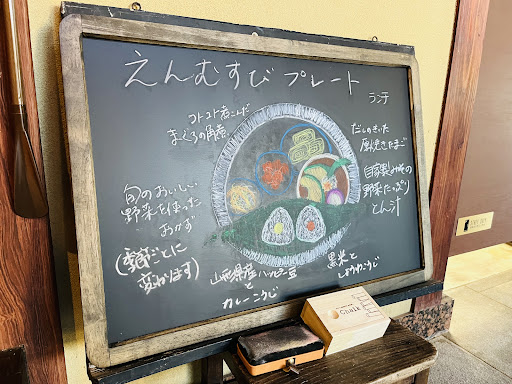 えんむすびプレート
ランチ
コトコト煮こんだ
まぐろの角煮
だしのきいた
厚焼きたまご
自家製みその
野菜たっぷり
とん汁
旬のおいしい
野菜を使った
おかず
(季節ごとに
変わります)
山形県産ハッピー豆
と
カレーこうじ
黒米と
しょうゆこうじ
Chalk